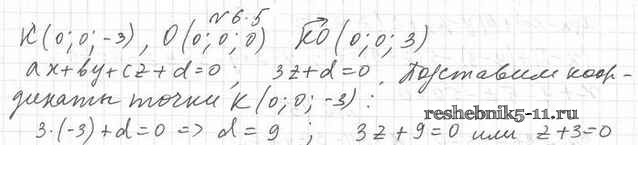 №6.5
K(0;0;-3), O(0;0;0) \overrightarrow{KO}(0;0;3)
ax+by+cz+d=0; 3z+d=0. Подставим коор-
динаты точки K(0;0;-3):
reshebnik5-11.ru
3·(-3)+d=0 => d=9 ; 3z+9=0 или z+3=0